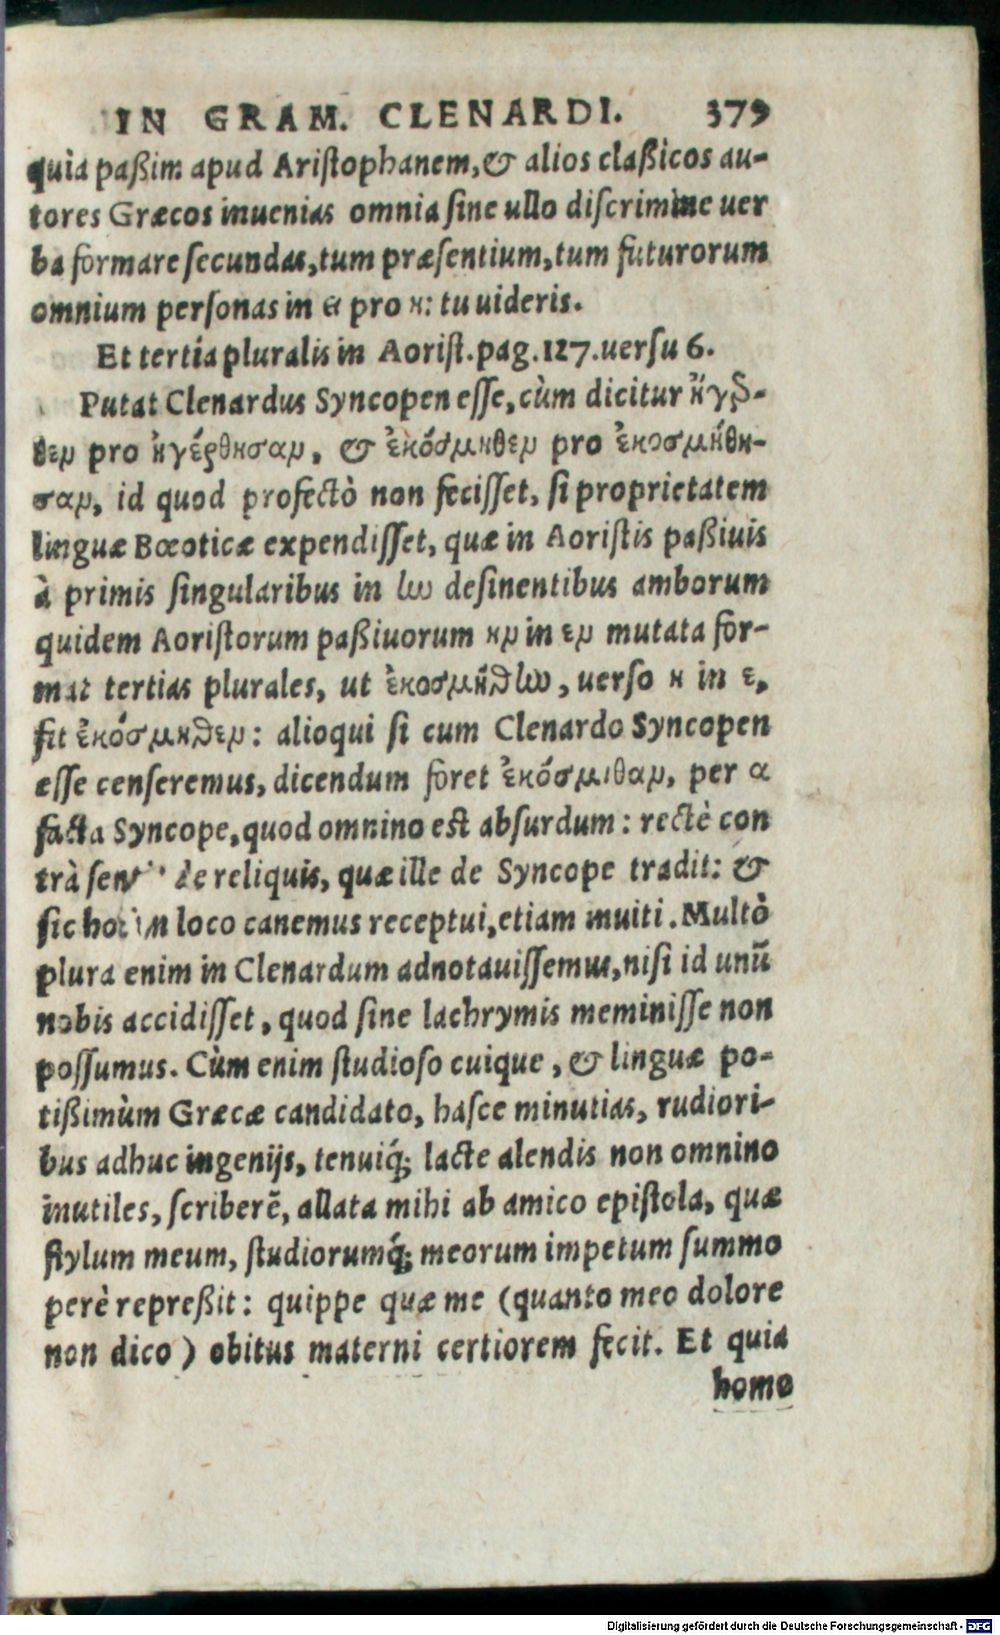 IN GRAM. CLENARDI. 379
quia paßim apud Ariſtophanem, & alios claßicos au-
tores Græcos inuenias omnia ſine ullo diſcrimine uer
ba formare ſecundas, tum præſentium, tum futurorum
omnium perſonas in ει pro η: tu uideris.
Et tertia pluralis in Aoriſt. pag. 127. uerſu 6.
Putat Clenardus Syncopen eſſe, cùm dicitur ἤγερ-
θεν pro ἠγέρθησαν, & ἐκόσμηθεν pro ἐκοσμήθη-
σαν, id quod profectò non feciſſet, ſi proprietatem
linguæ Bœoticæ expendiſſet, quæ in Aoriſtis paßiuis
à primis ſingularibus in ην deſinentibus amborum
quidem Aoriſtorum paßiuorum ην in εν mutata for-
mat tertias plurales, ut ἐκοσμήθην, uerſo η in ε,
fit ἐκόσμηθεν: alioqui ſi cum Clenardo Syncopen
eſſe cenſeremus, dicendum foret ἐκόσμιθαν, per α
facta Syncope, quod omnino est abſurdum: rectè con
trà de reliquis, quæ ille de Syncope tradit: &
ſic in loco canemus receptui, etiam inuiti. Multò
plura enim in Clenardum adnotauiſſemus, niſi id unũ
nobis accidiſſet, quod ſine lachrymis meminiſſe non
poſſumus. Cùm enim ſtudioſo cuique, & linguæ po-
tißimùm Græcæ candidato, haſce minutias, rudiori-
bus adhuc ingenijs, tenuiq́; lacte alendis non omnino
inutiles, ſcriberẽ, allata mihi ab amico epiſtola, quæ
ſtylum meum, ſtudiorumq́; meorum impetum ſummo
perè repreßit: quippe quæ me (quanto meo dolore
non dico) obitus materni certiorem fecit. Et quia
homo
Digitalisierung gefördert durch die Deutsche Forschungsgemeinschaft - DFG